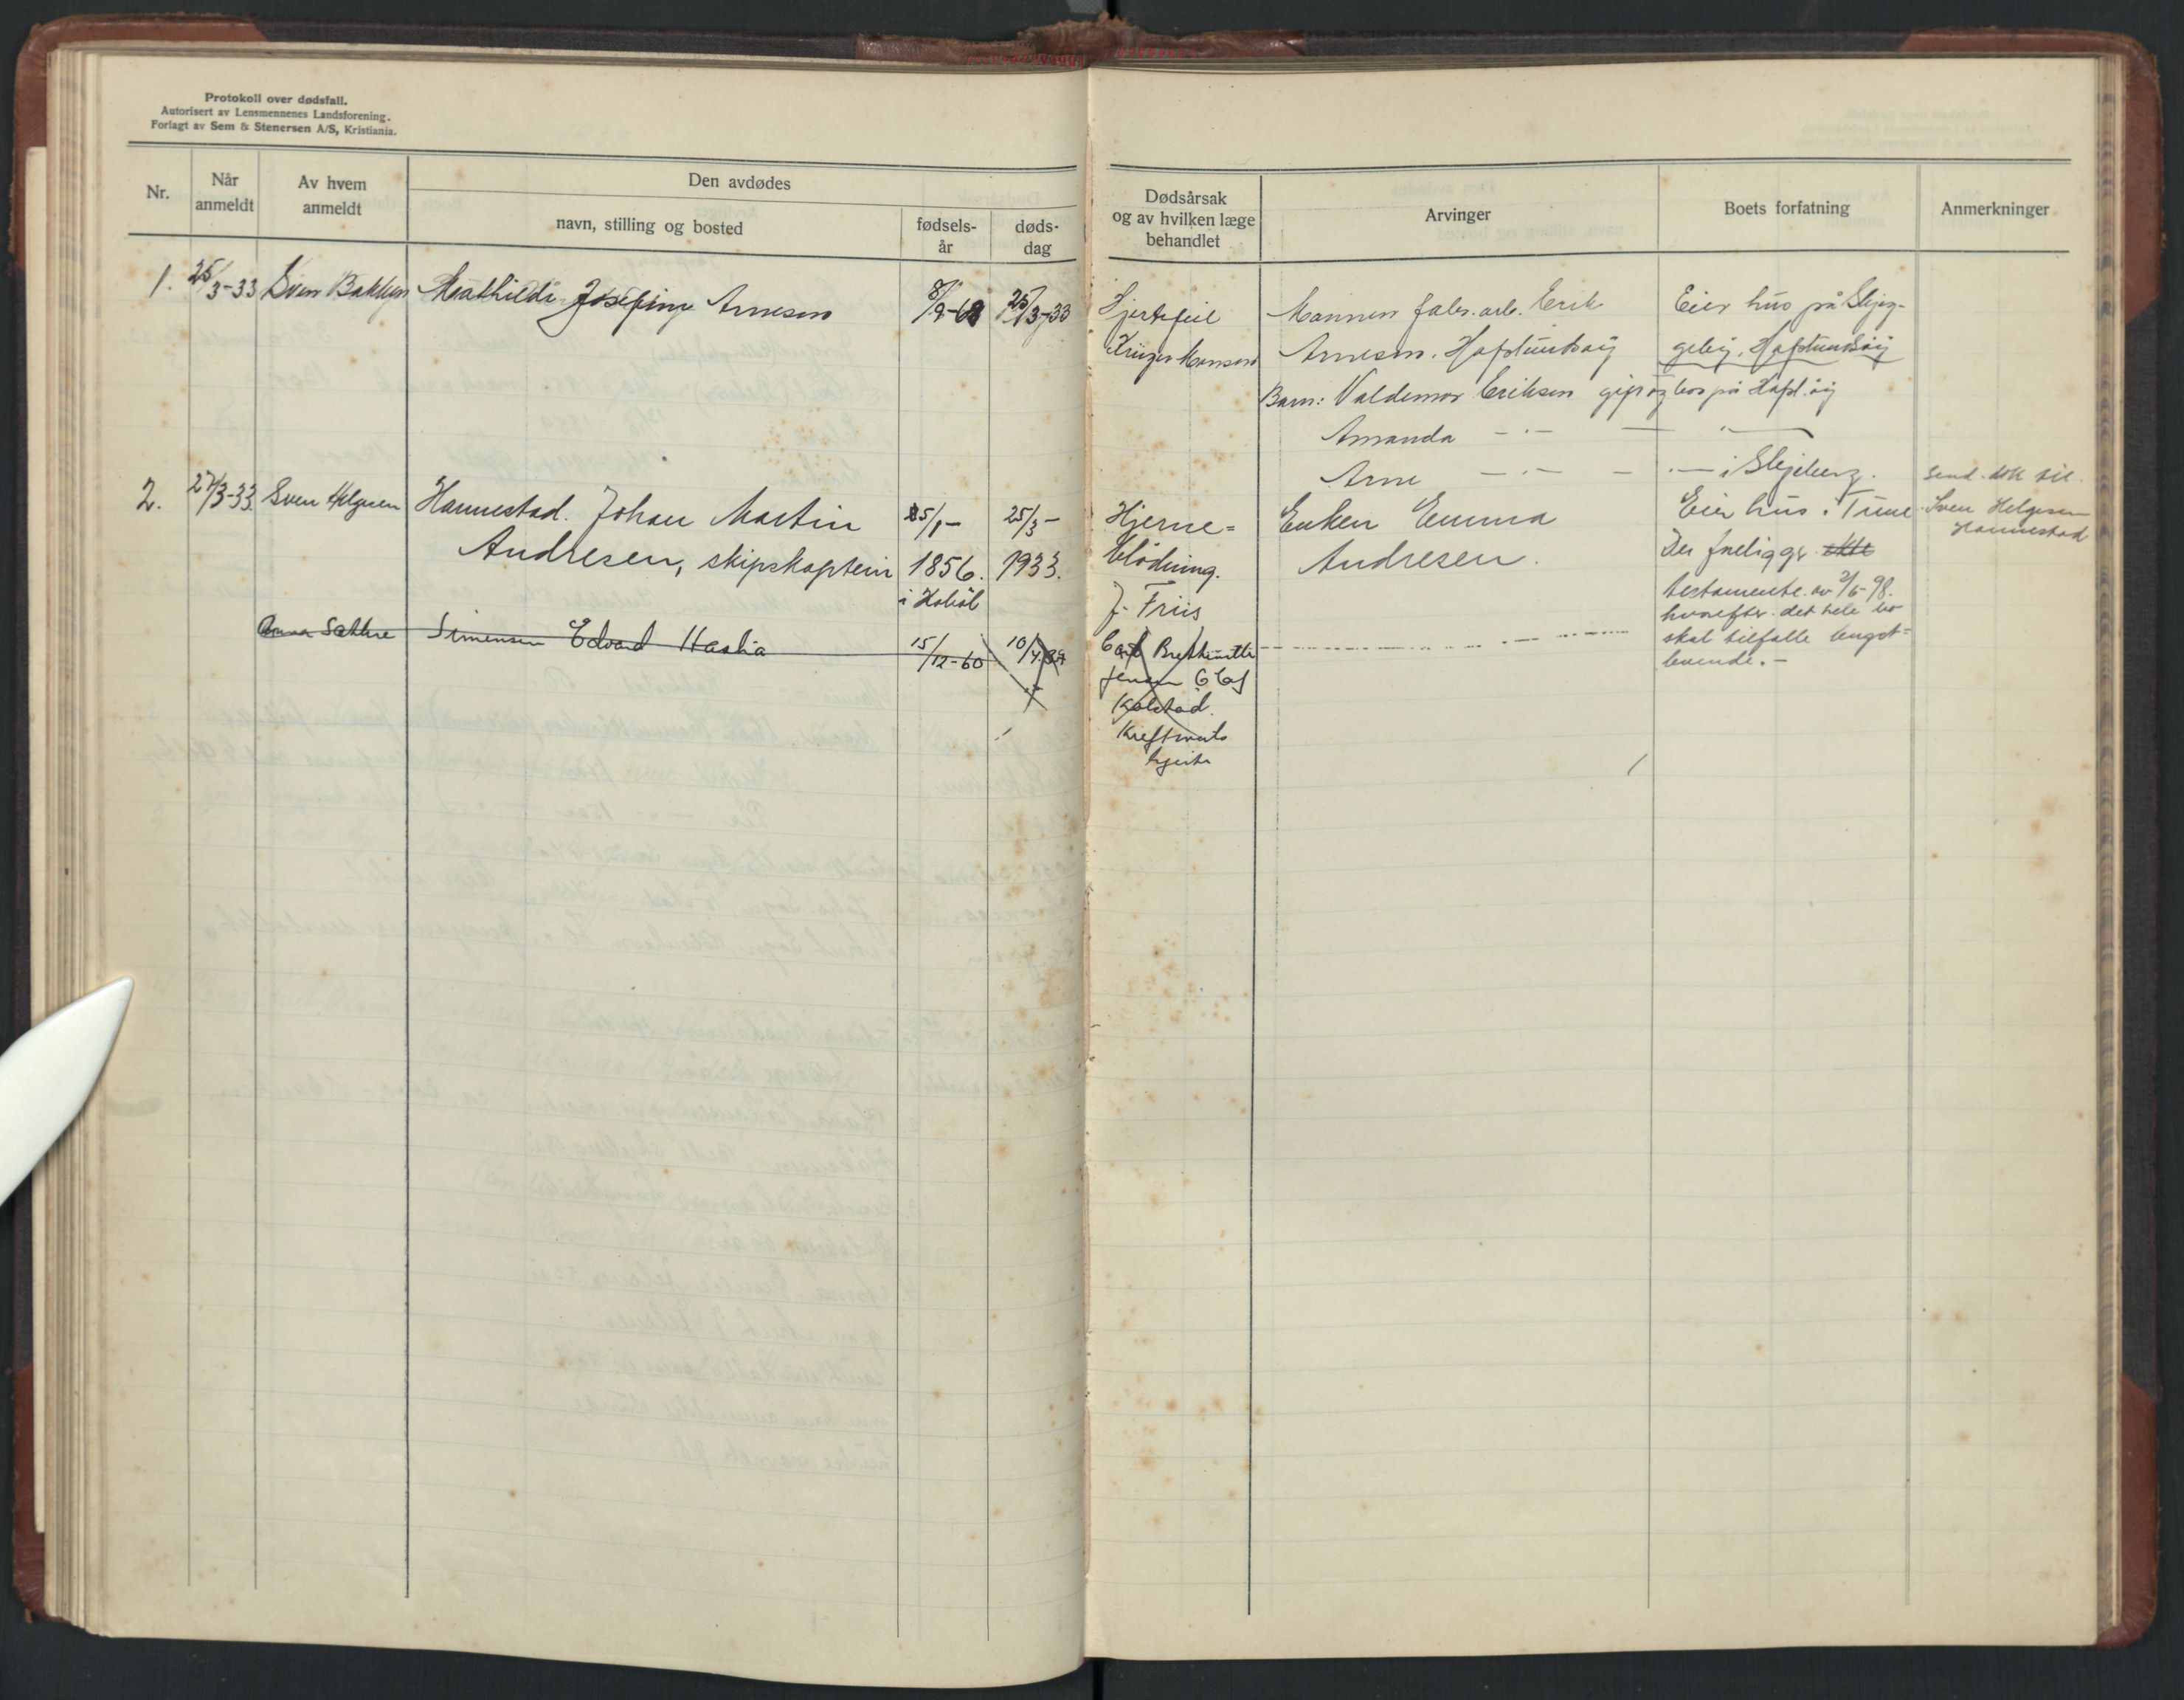 Protokoll over dødsfall.
Autorisert av Lensmennenes Landsforening.
Forlagt av Sem & Stenersen A/S, Kristiania.
Nr.
Når anmeldt
Av hvem anmeldt
Den avdødes
navn, stilling og bosted
fødsels-
år
døds-
dag
Dødsårsak
og av hvilken læge
behandlet
Arvinger
Boets forfatning
Anmerkninger
1. 25/3-33 Sven Bakken Mathilde Josefine Arnesen 8/9-68 25/3-33
Hjertefeil
Krüger Monsen
Mannen fabr. arb. Erik
Arnesen. Hafslundsøy
Barn: Valdemar Eriksen gift og bor på Hafsl.øy
Amanda -"- — "
Arne -"- - "— i Skjeberg.
Eier hus på
geby, Hafslundsøy
2. 27/3-33. Sven Helgesen Hannestad. Johan Martin 25/1- 25/3-
Andresen, skipskaptein 1856. 1933.
i Hobøl
Hjerne=
blödning.
J. Friis
Enken Emma
Andresen.
Eier hus i Tune
Der foreligger ikke
testamente av 2/6-98.
hvorefter det hele bo
skal tilfalle lengst=
levende.-
Send. til
Sven Helgesen
Hannestad
Anna Sæthre Simensen Edvard Haslia 15/12-60 10/4
Carl
Jensen Olaf
Kolstad.
Kreft
hjerte